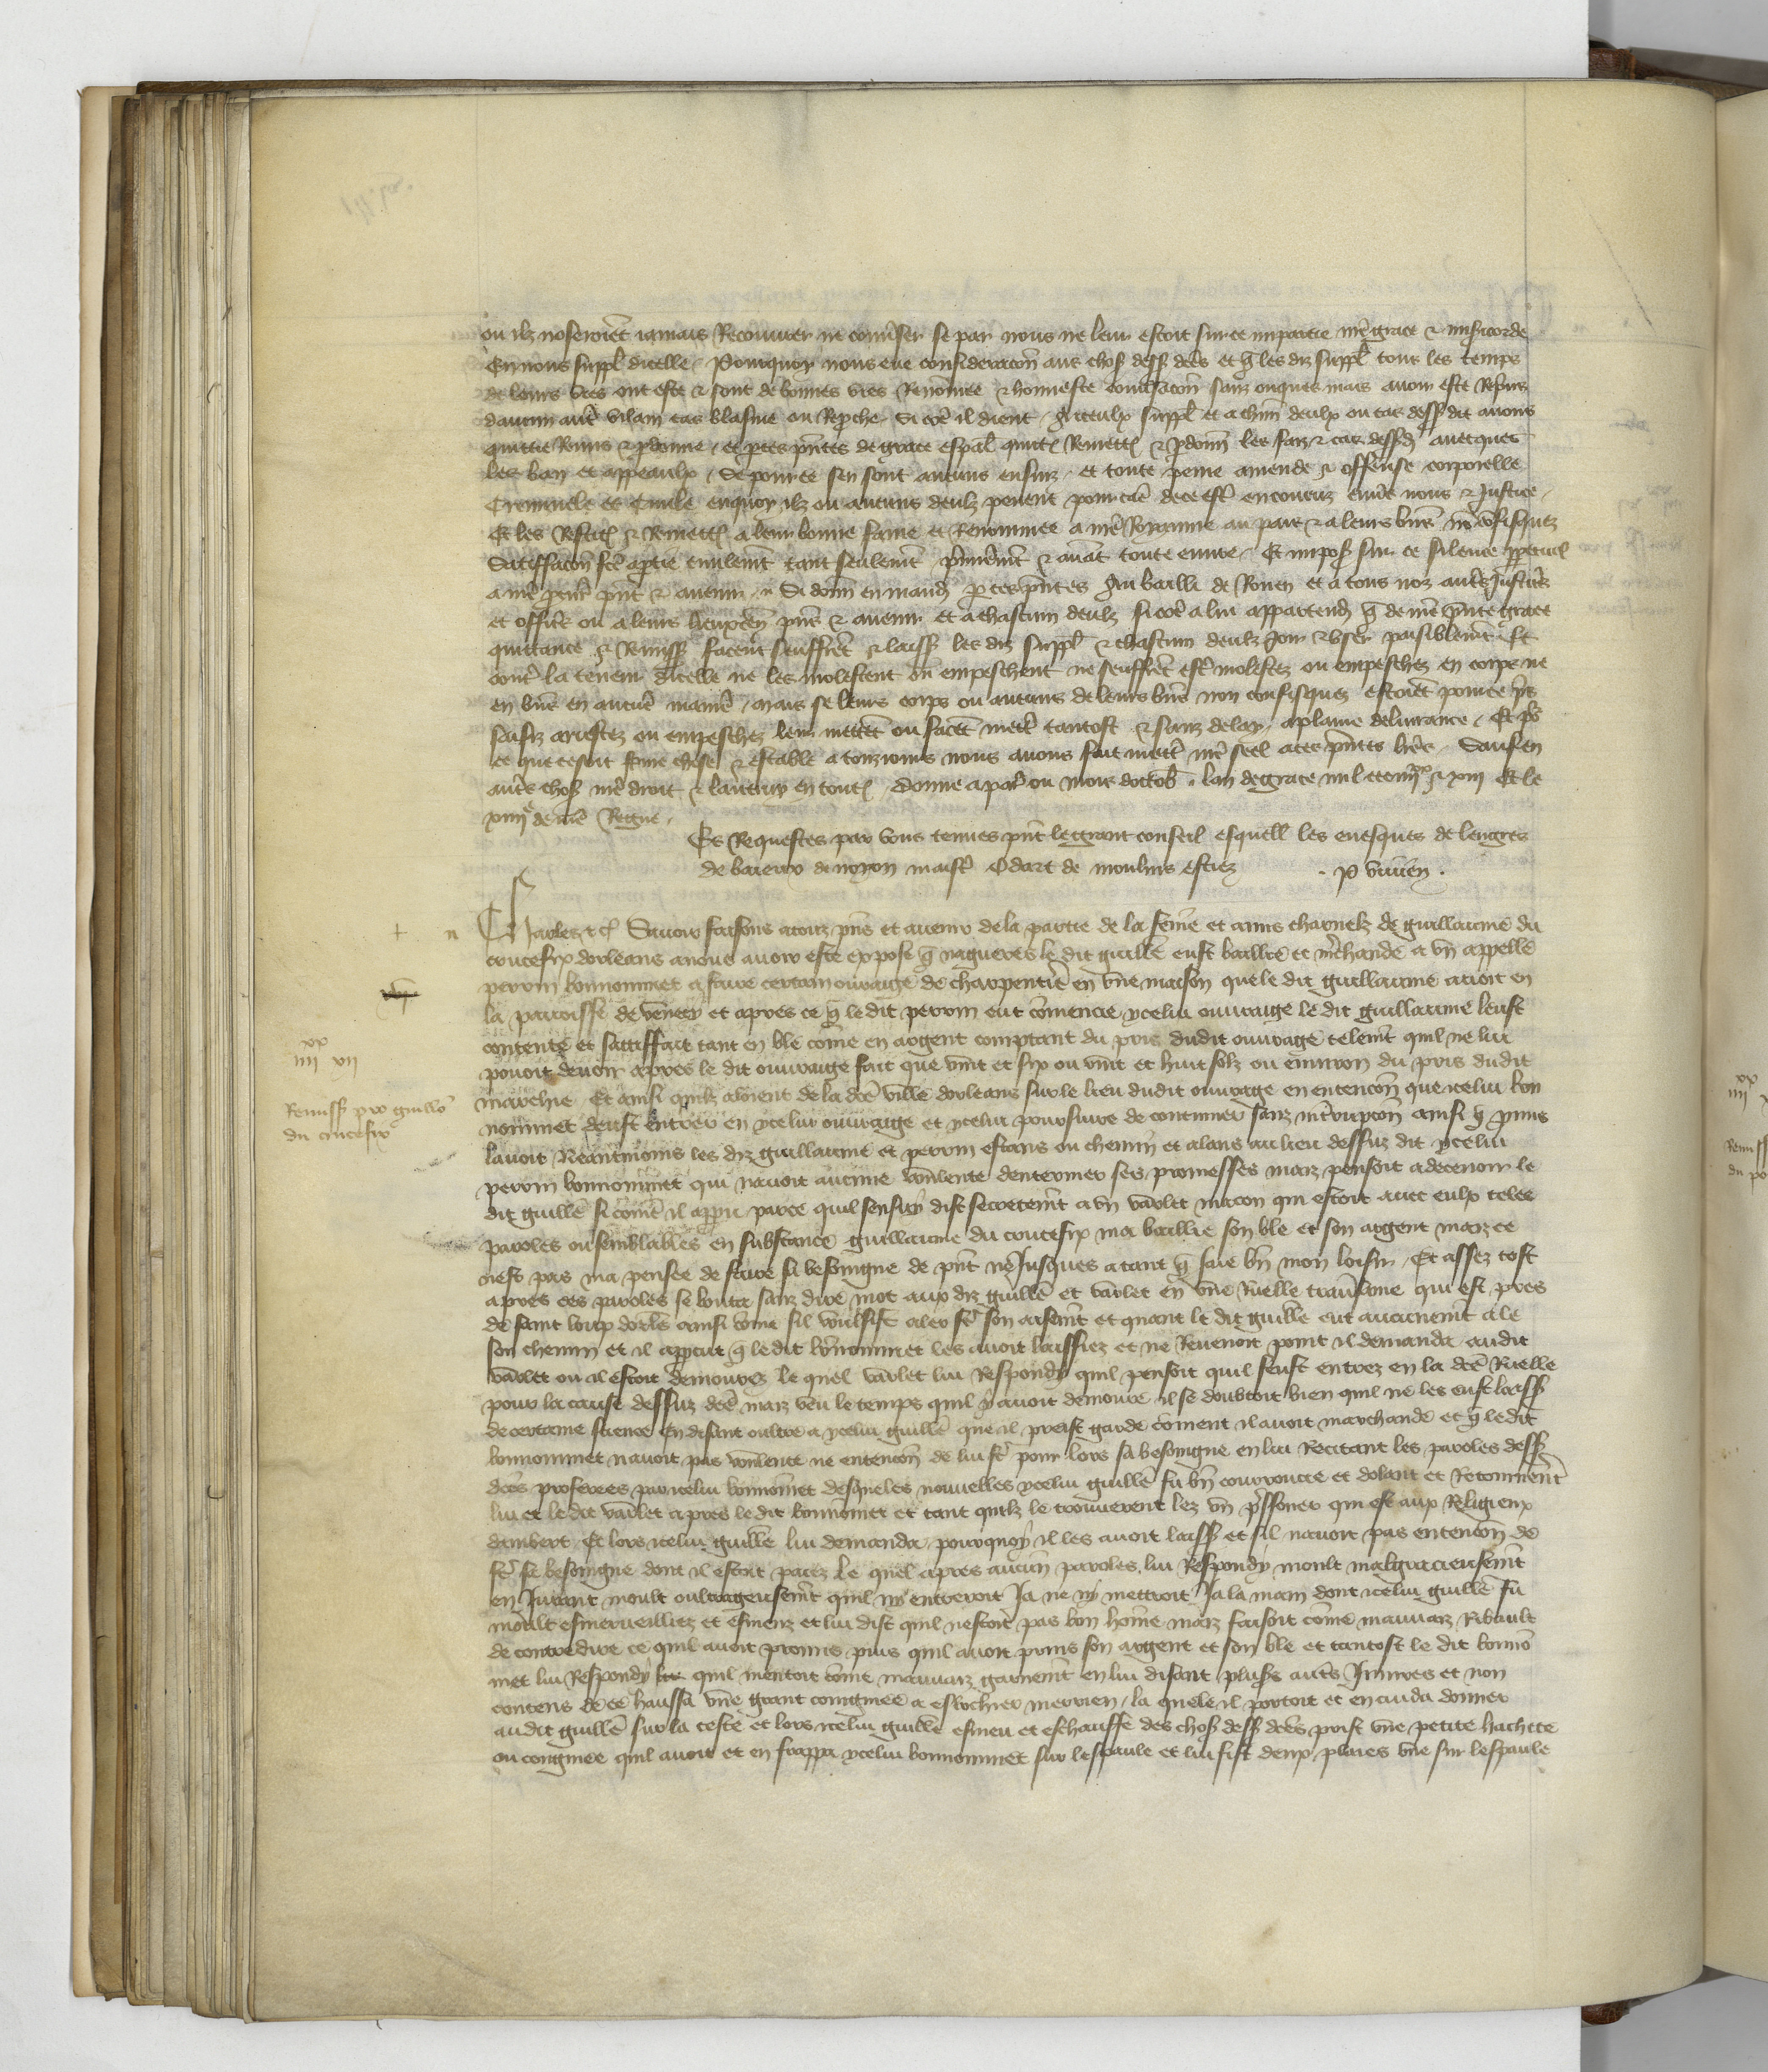 ou ilz noseroiēt iamais Retourner ne conv̄ser se par nous ne leur estoit sur ce impartie nr̄e grace & mis̄icorde
En nous suppl̄ dicelle / Pourquoy nous eue consideracōn aus chos̄ dess̄ dc̄es et q̄ les diz suppl̄ tous les temps
de leurs vies ont este & sont de bonnes vies Renōmee & honneste conv̄sacōn sanz onques mais auoir este Rep̄rins
daucun aut̄e vilain cas blasme ou Rep̄che Si cōe il dient / A iceulx suppl̄ et a chūn deulx ou cas dess̄ dit auons
quittie Remis & p̄donne / et p̄ ces p̄ntes de grace esp̄al quittōs Remettōs & p̄donnōs les faiz & cas dessd̄ auecques
les ban et appeaulx / Se pource sen sont aucuns ensuiz / et toute peine amende & offense corporelle
Criminele et Ciuile enquoy ilz ou aucuns deulz peuent pour cāe de ce estr̄ encouruz enuēs nous & Justice /
Et les Restit̄ & Remettōs a leur bonne fame et Renommee a nr̄e Royaume au pais & a leurs biēs nō cōfisquez
Satiffacōn fc̄e a partie ciuilemēt tant seulemēt p̄mieremēt & auāt toute euure / Et impos̄ sur ce silence p̄petuel
a nr̄e procur̄ p̄nt & auenir / Si donn̄ en mand̄ p̄ ces p̄ntes Au bailli de Rouen et a tous noz aut̄es Justic̄rs
et offic̄rs ou a leurs lieuxten̄ p̄ns & auenir et a chascun deulz si cōe a lui appartend̄ q̄ de nr̄e p̄nte grace
quittance & Remiss̄ facent seuffrēt & laiss̄ les diz suppl̄ & chascun deulz Joir & vser paisiblemēt Et
contr̄ la teneur dicelle ne les molestent ou empeschent ne seuffrēt estr̄ molestez ou empeschez en corps ne
en biēs en aucūe manīe / mais se leurs corps ou aucuns de leurs biēs non confisquez estoiēt pource p̄s
saisiz arrestez ou empeschez leur mettēt ou facēt mettr̄ tantost & sanz delay a plaine deliurance / Et p̄
ce que ce soit ferme chose & estable a tousiours nous auons fait mettr̄ nr̄e seel a ces p̄ntes lr̄es / Sauf en
aut̄es chos̄ nr̄e droit & lautruy en toutes / Donne a par̄ ou mois doctob̄ / lan de grace mil ccc iiij xx & xiij Et le
xiiij e de nr̄e Regne /
Es Requestes par vous tenues p̄nt le grant conseil esquell̄ les euesques de lengres
de baieux de noyon maistr̄ Odart de moulins estiez . P viuien .
Charles &c Sauoir faisons a touz p̄ns et auenir de la partie de la fēme et amis charnelz de guillaume du
crucefix dorleans a nous auoir este expose q̄ nagueres le dit guillē eust baillie et m̄chande a vn appelle
perrin bonnommet a faire certain ouuraige de charpentīe en vne maison que le dit guillaume auoit en
la parroisse de vēnecy et apres ce q̄ le dit perrin eut cōmencie ycelui ouuraige le dit guillaume leust
contente et satiffait tant en ble cōme en argent comptant du pris dudit ouurage telemēt quil ne lui
pouoit deuoir apres le dit ouuraige fait que vint et six ou vint et huit solz ou enuiron du pris dudit
marchie / Et ainsi quilz aloient de la dc̄e ville dorleans sur le lieu dudit ouurage en entencōn que icelui bon
nommet deust entrer en ycelui ouuraige et ycelui poursuiure de continuer sanz int̄rupcōn ainsi q̄ p̄mis
lauoit Neantmoins les diz guillaume et perrin estans ou chemin et alans au lieu dessuz dit ycelui
perrin bonnommet qui nauoit aucune voulente denteriner ses promesses maiz pensoit a deceuoir le
dit guillē si cōme il apparu parce quil sensuy dist secretemēt a vn varlet macon qui estoit auec eulx teles
paroles ou semblables en substance guillaume du crucefix ma baillie son ble et son argent maiz ce
nest pas ma pensee de faire sa besoingne de p̄nt ne Jusques a tant q̄ jaie bn̄ mon loisir / Et assez tost
apres ces paroles se bouta sanz dire mot aux diz guillē et varlet en vne Ruelle trauersaine qui est pres
de saint loup dorlēs ainsi cōme sil voulsist aler fr̄e son aisemēt et quant le dit guillē eut aucunemēt ale
son chemin et il apparcut q̄ le dit bonnommet les auoit laissiez et ne Reuenoit point il demanda audit
varlet ou il estoit demourez le quel varlet lui Respondy quil pensoit quil feust entrez en la dc̄e Ruelle
pour la cause dessuz dc̄e maiz veu le temps quil y auoit demoure il se doubtoit bien quil ne les eust laiss̄
de certaine science en disant oultre a ycelui guillē que il preist garde cōment il auoit marchande et q̄ le dit
bonnommet nauoit pas voulente ne entencōn de lui fr̄e pour lors sa besoingne en lui Recitant les paroles dess̄
dc̄es proferees par icelui bonnōmet desqueles nouuelles ycelui guillē fu bn̄ courroucie et dolant et Retournēr̄t
lui et le dit varlet apres le dit bonnōmet et tant quilz le trouuerent lez vn p̄ssouer qui est aux Religieux
dambert / Et lors icelui guillē lui demanda pourquoy il les auoit laiss̄ et sil nauoit pas entencōn de
fr̄e sa besoingne dont il estoit paiez le quel apres aucūs paroles lui Respondy moult malgracieusemēt
en Jurant moult oultrageusemēt quil ny entreroit Ja ne ny mettroit Ja la main dont icelui guillē fu
moult esmerueilliez et esmeuz et lui dist quil nestoit pas bon hōme maiz faisoit cōme mauuaiz Ribault
de contredire ce quil auoit promis puis quil auoit prins son argent et son ble et tantost le dit bonnō
met lui Respondy quil mentoit cōme mauuaiz garnemēt en lui disant plus̄rs aut̄es Iniures et non
contens de ce haussa vne grant coingniee a eslochier merrien / la quele il portoit et en cuida donner
au dit guillē sur la teste et lors icelui guillē esmeu et eschauffe des chos̄ dess̄ dc̄es prist vne petite hachete
ou congniee quil auoit et en frappa ycelui bonnommet sur lespaule et lui fist deux plaies vne sur lespaule
xx
iiij xij
Remiss̄ pro guillō
du crucefix